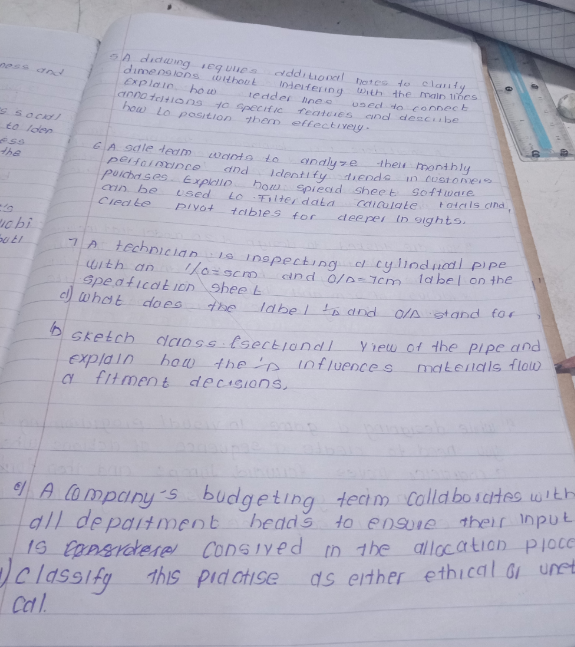 ness and
s social
to iden
ess
the
uchi
5 A drawing requires additional notes to clarify
dimensions without interfering with the main lines
Explain how leader lines used to connect
annotations to specific features and describe
how to position them effectively.
6 A sale team wants to analyze their monthly
performance and identify trends in customers
purchases. Explain how spread sheet software
can be used to Filter data calculate totals and,
create pivot tables for deeper in sights.
7 A technician is inspecting a cylindrical pipe
with an I/D = 5cm and O/D = 7cm label on the
speafication sheet
a) what does the label I/D and O/D stand for
b sketch across (sectional view of the pipe and
explain how the I/D influences materials flow
a fitment decisions.
A company's budgeting team collaborates with
all department heads to ensure their input
is consived in the allocation proce
) classify this practise as either ethical or unet
cal.